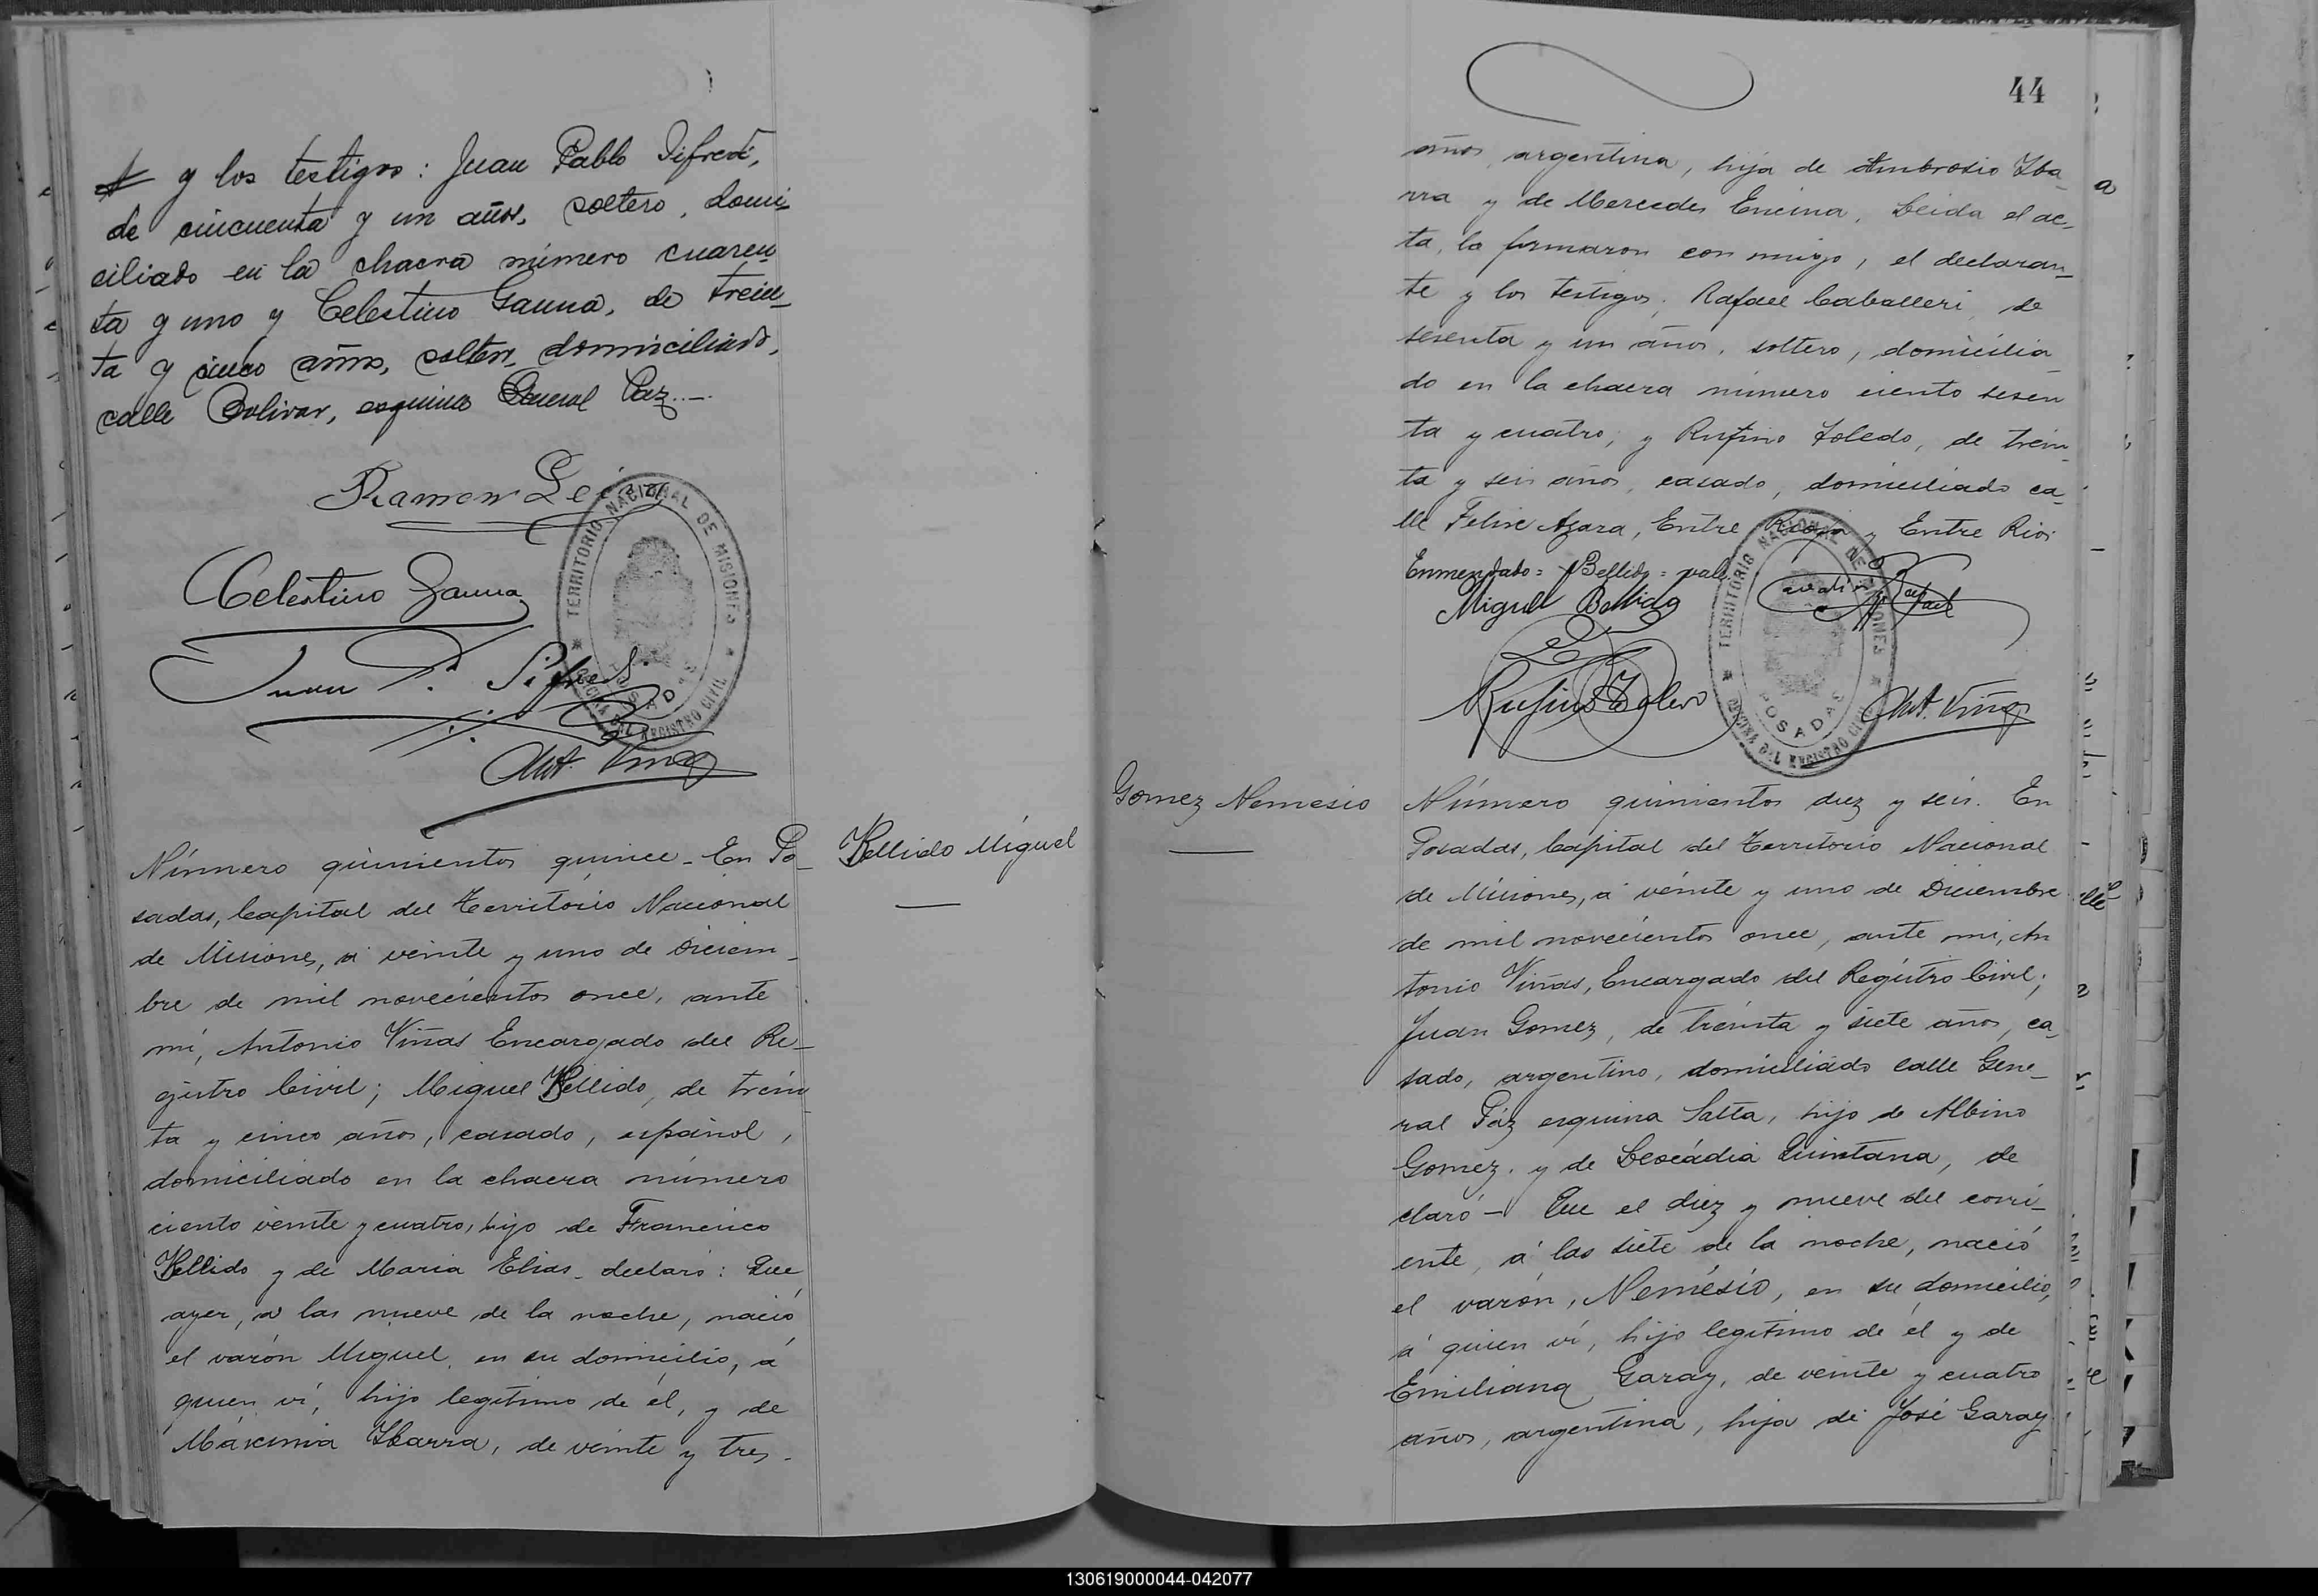 y los testigos: Juan Pablo Sifredi,
de cincuenta y un años, soltero, domi-
ciliado en la chacra número cuaren
ta y uno y Celestino Gauna, de trein-
ta y cinco años, soltero, domiciliado,
calle Bolivar, esquina General Paz.—
Ramon
Celestino Gauna
Juan P. Sifredi
TERRITORIO NACIONAL DE MISIONES
OFICINA DEL REGISTRO CIVIL
POSADAS
Ant. Viñas
Número quinientos quince - En Po-
sadas, Capital del Territorio Nacional
de Misiones, á veinte y uno de Diciem-
bre de mil novecientos once, ante
mí, Antonio Viñas Encargado del Re-
gistro Civil; Miguel Bellido, de trein-
ta y cinco años, casado, español,
domiciliado en la chacra número
ciento veinte y cuatro, hijo de Francisco
Bellido y de Maria Elias declaró: Que
ayer, á las nueve de la noche, nació
el varón Miguel, en su domicilio, á
quien ví, hijo legítimo de él, y de
Máxima Ibarra, de veinte y tres
Bellido Miguel
44
años, argentina, hija de Ambrosio Iba-
rra y de Mercedes Encina. Leida el ac-
ta, la firmaron con migo, el declaran-
te y los testigos, Rafael Caballeri, de
sesenta y un años, soltero, domicilia-
do en la chacra número ciento sesen
ta y cuatro, y Rufino Toledo, de trein-
ta y seis años, casado, domiciliado ca-
lle Felix Azara, Entre Rioja y Entre Rios
Enmendado = Bellido = vale
Miguel Bellido
Rafael
Rufino Toledo
TERRITORIO NACIONAL DE MISIONES
OFICINA DEL REGISTRO CIVIL
POSADAS
Ant. Viñas
Gomez Nemesio
Número quinientos diez y seis. En
Posadas, Capital del Territorio Nacional
de Misiones, á veinte y uno de Diciembre
de mil novecientos once, ante mi, An
tonio Viñas, Encargado del Registro Civil;
Juan Gomez, de treinta y siete años, ca-
sado, argentino, domiciliado calle Gene-
ral Páz esquina Salta, hijo de Albino
Gomez y de Leocádia Quintana, de
claró - Que el diez y nueve del corri-
ente, á las siete de la noche, nació
el varón, Nemésio, en su domicilio,
á quien ví, hijo legítimo de él y de
Emiliana Garay, de veinte y cuatro
años, argentina, hija de José Garay
130619000044-042077